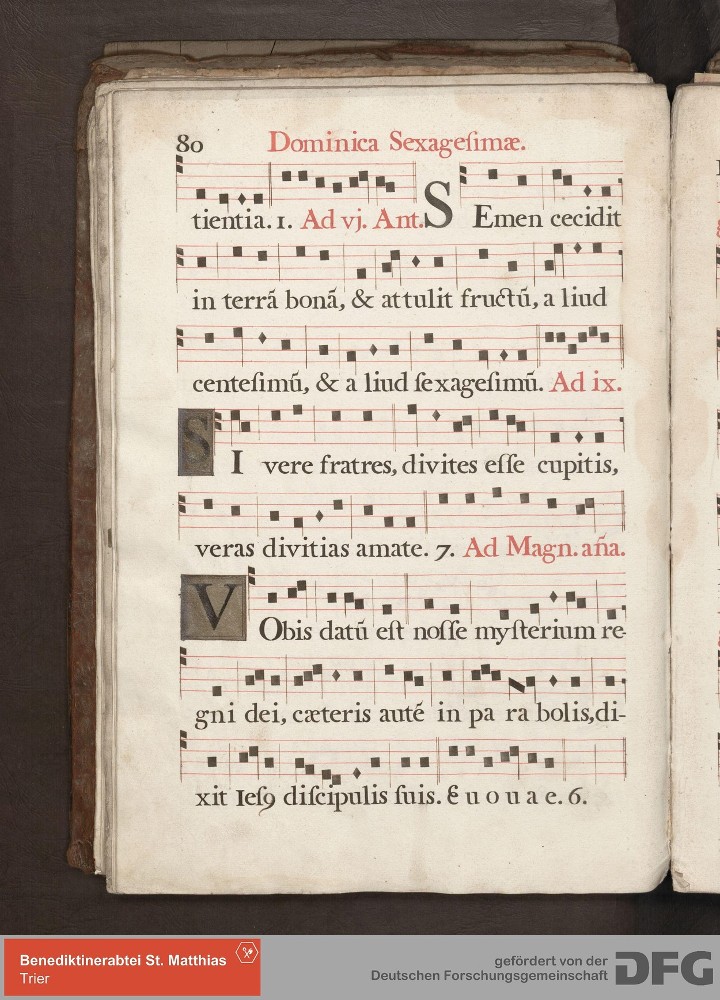 80 Dominica Sexageſimæ.
tientia. 1. Ad vj. Ant. SEmen cecidit
in terrã bonã, & attulit fructũ, a liud
centeſimũ, & a liud ſexageſimũ. Ad ix.
SI vere fratres, divites eſſe cupitis,
veras divitias amate. 7. Ad Magn. aña.
VObis datũ eſt noſſe myſterium re-
gni dei, cæteris auté in pa ra bolis, di-
xit Ieſꝯ diſcipulis ſuis. E u o u a e. 6.
Benediktinerabtei St. Matthias
Trier
gefördert von der
Deutschen Forschungsgemeinschaft
DFG